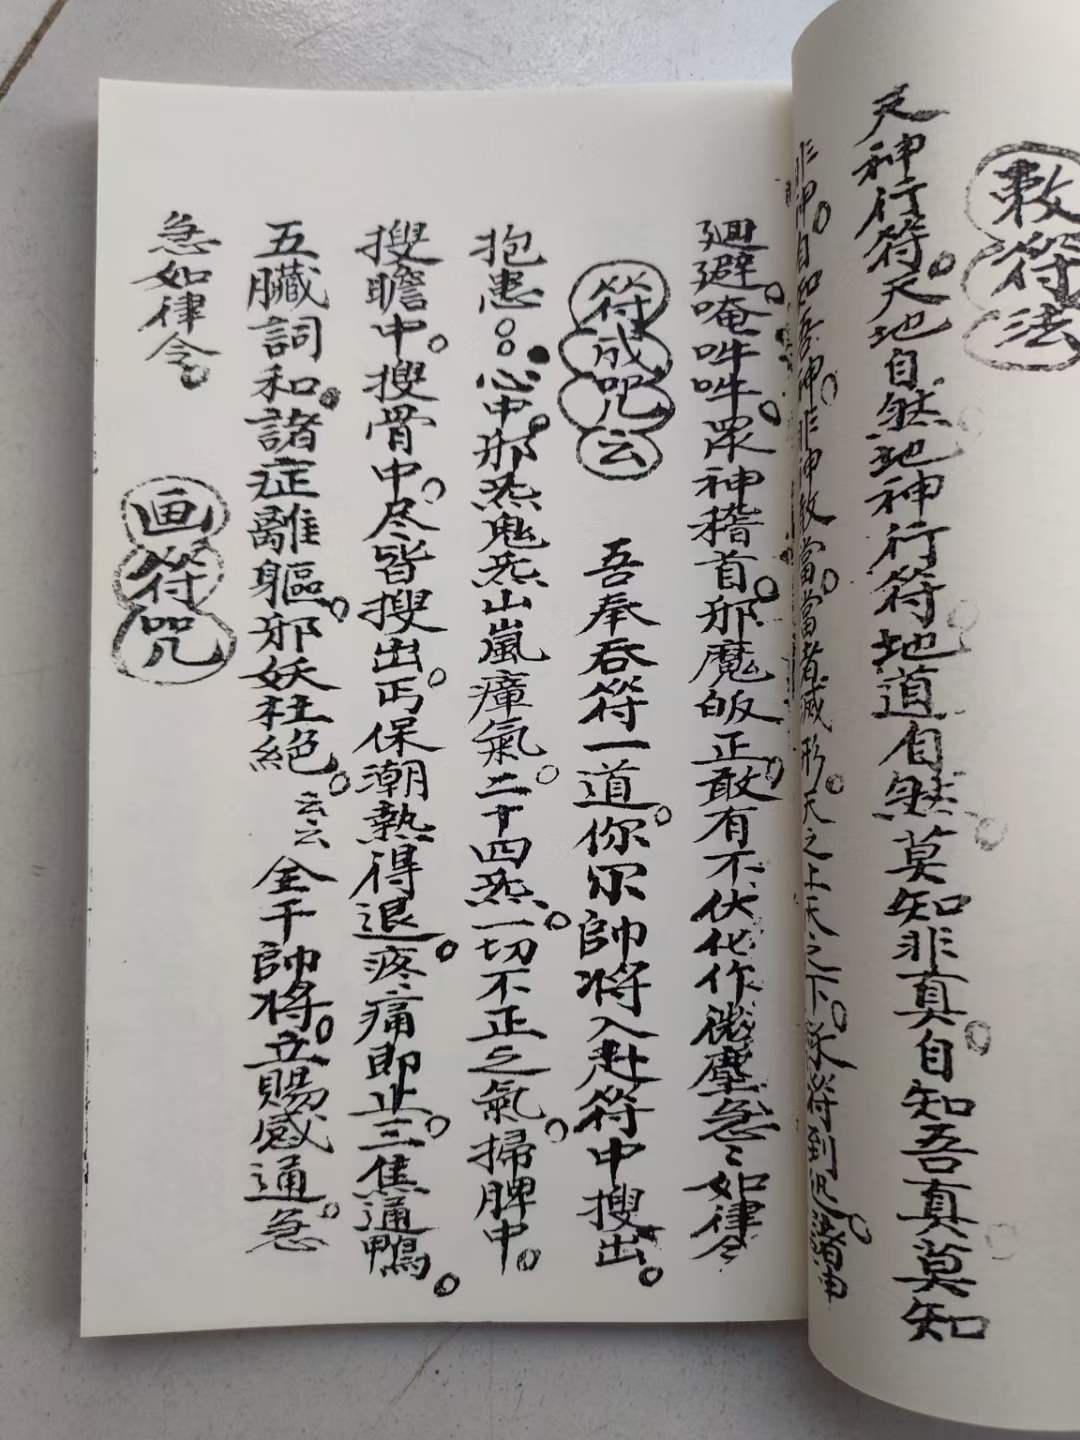 敕符法
天神行符。天地自然地神行符地道自然莫知非真自知吾真莫知
非神。自知吾神。非神敕當。當者滅形。天之上天之下。承符到処。諸神
廻避。唵吽吽。眾神稽首。邪魔皈正。敢有不伏化作微塵急〻如律令
符成咒云
吾奉吞符一道。你尔帥将入赴符中搜出。
抱患。心中。邪炁鬼炁山嵐瘴氣。二十四炁。一切不正之氣。掃脾中。
搜瞻中。搜骨中。尽皆搜出。丐保潮熱得退。疼痛即止。三焦通鴨。
五臟詞和。諸症離軀。邪妖杜絕。云云 全千帥将。立賜感通。急
急如律令。
画符咒